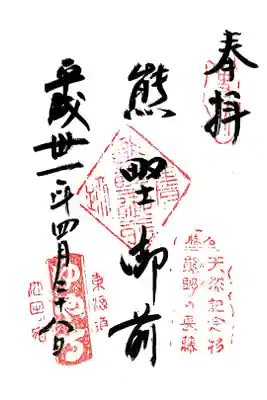 奉拝
熊野御前
平成卅一年四月二十八日
天然記念物
熊野の長藤
東海道
池田の宿